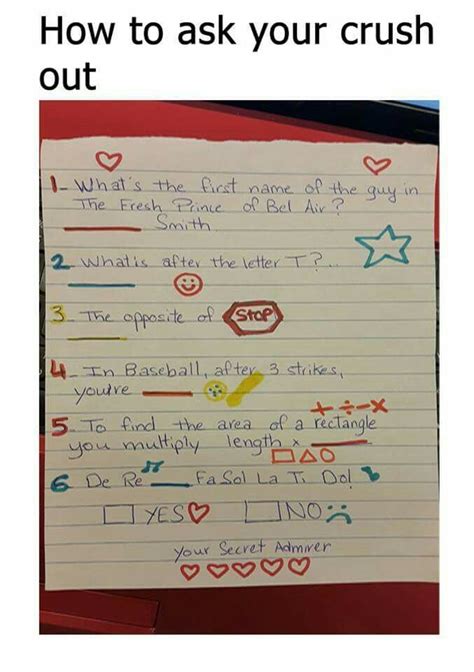 How to ask your crush
out
1- What's the first name of the guy in
The Fresh Prince of Bel Air?
______ Smith
2 What is after the letter T?..
______
3- The opposite of STOP
______
4- In Baseball, after 3 strikes,
you're ______
+ ÷ - X
5- To find the area of a rectangle
you multiply length x ______
6 De Re ____ Fa Sol La Ti Do!
YES NO
Your Secret Admirer